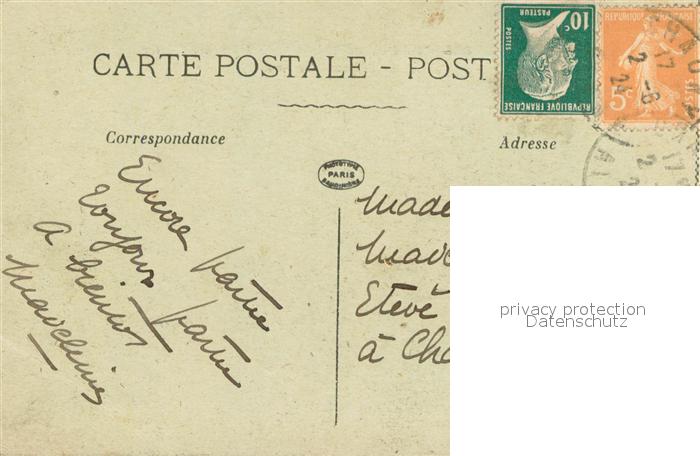 CARTE POSTALE - POST
10c
PASTEUR
POSTES
REPUBLIQUE FRANÇAISE
REPUBLIQUE FRANÇAISE
5c
Correspondance
Adresse
PARIS
Encore partie
toujours partie
A bientôt
Madeleine
Made
Made
Etevé
à Che
privacy protection
Datenschutz